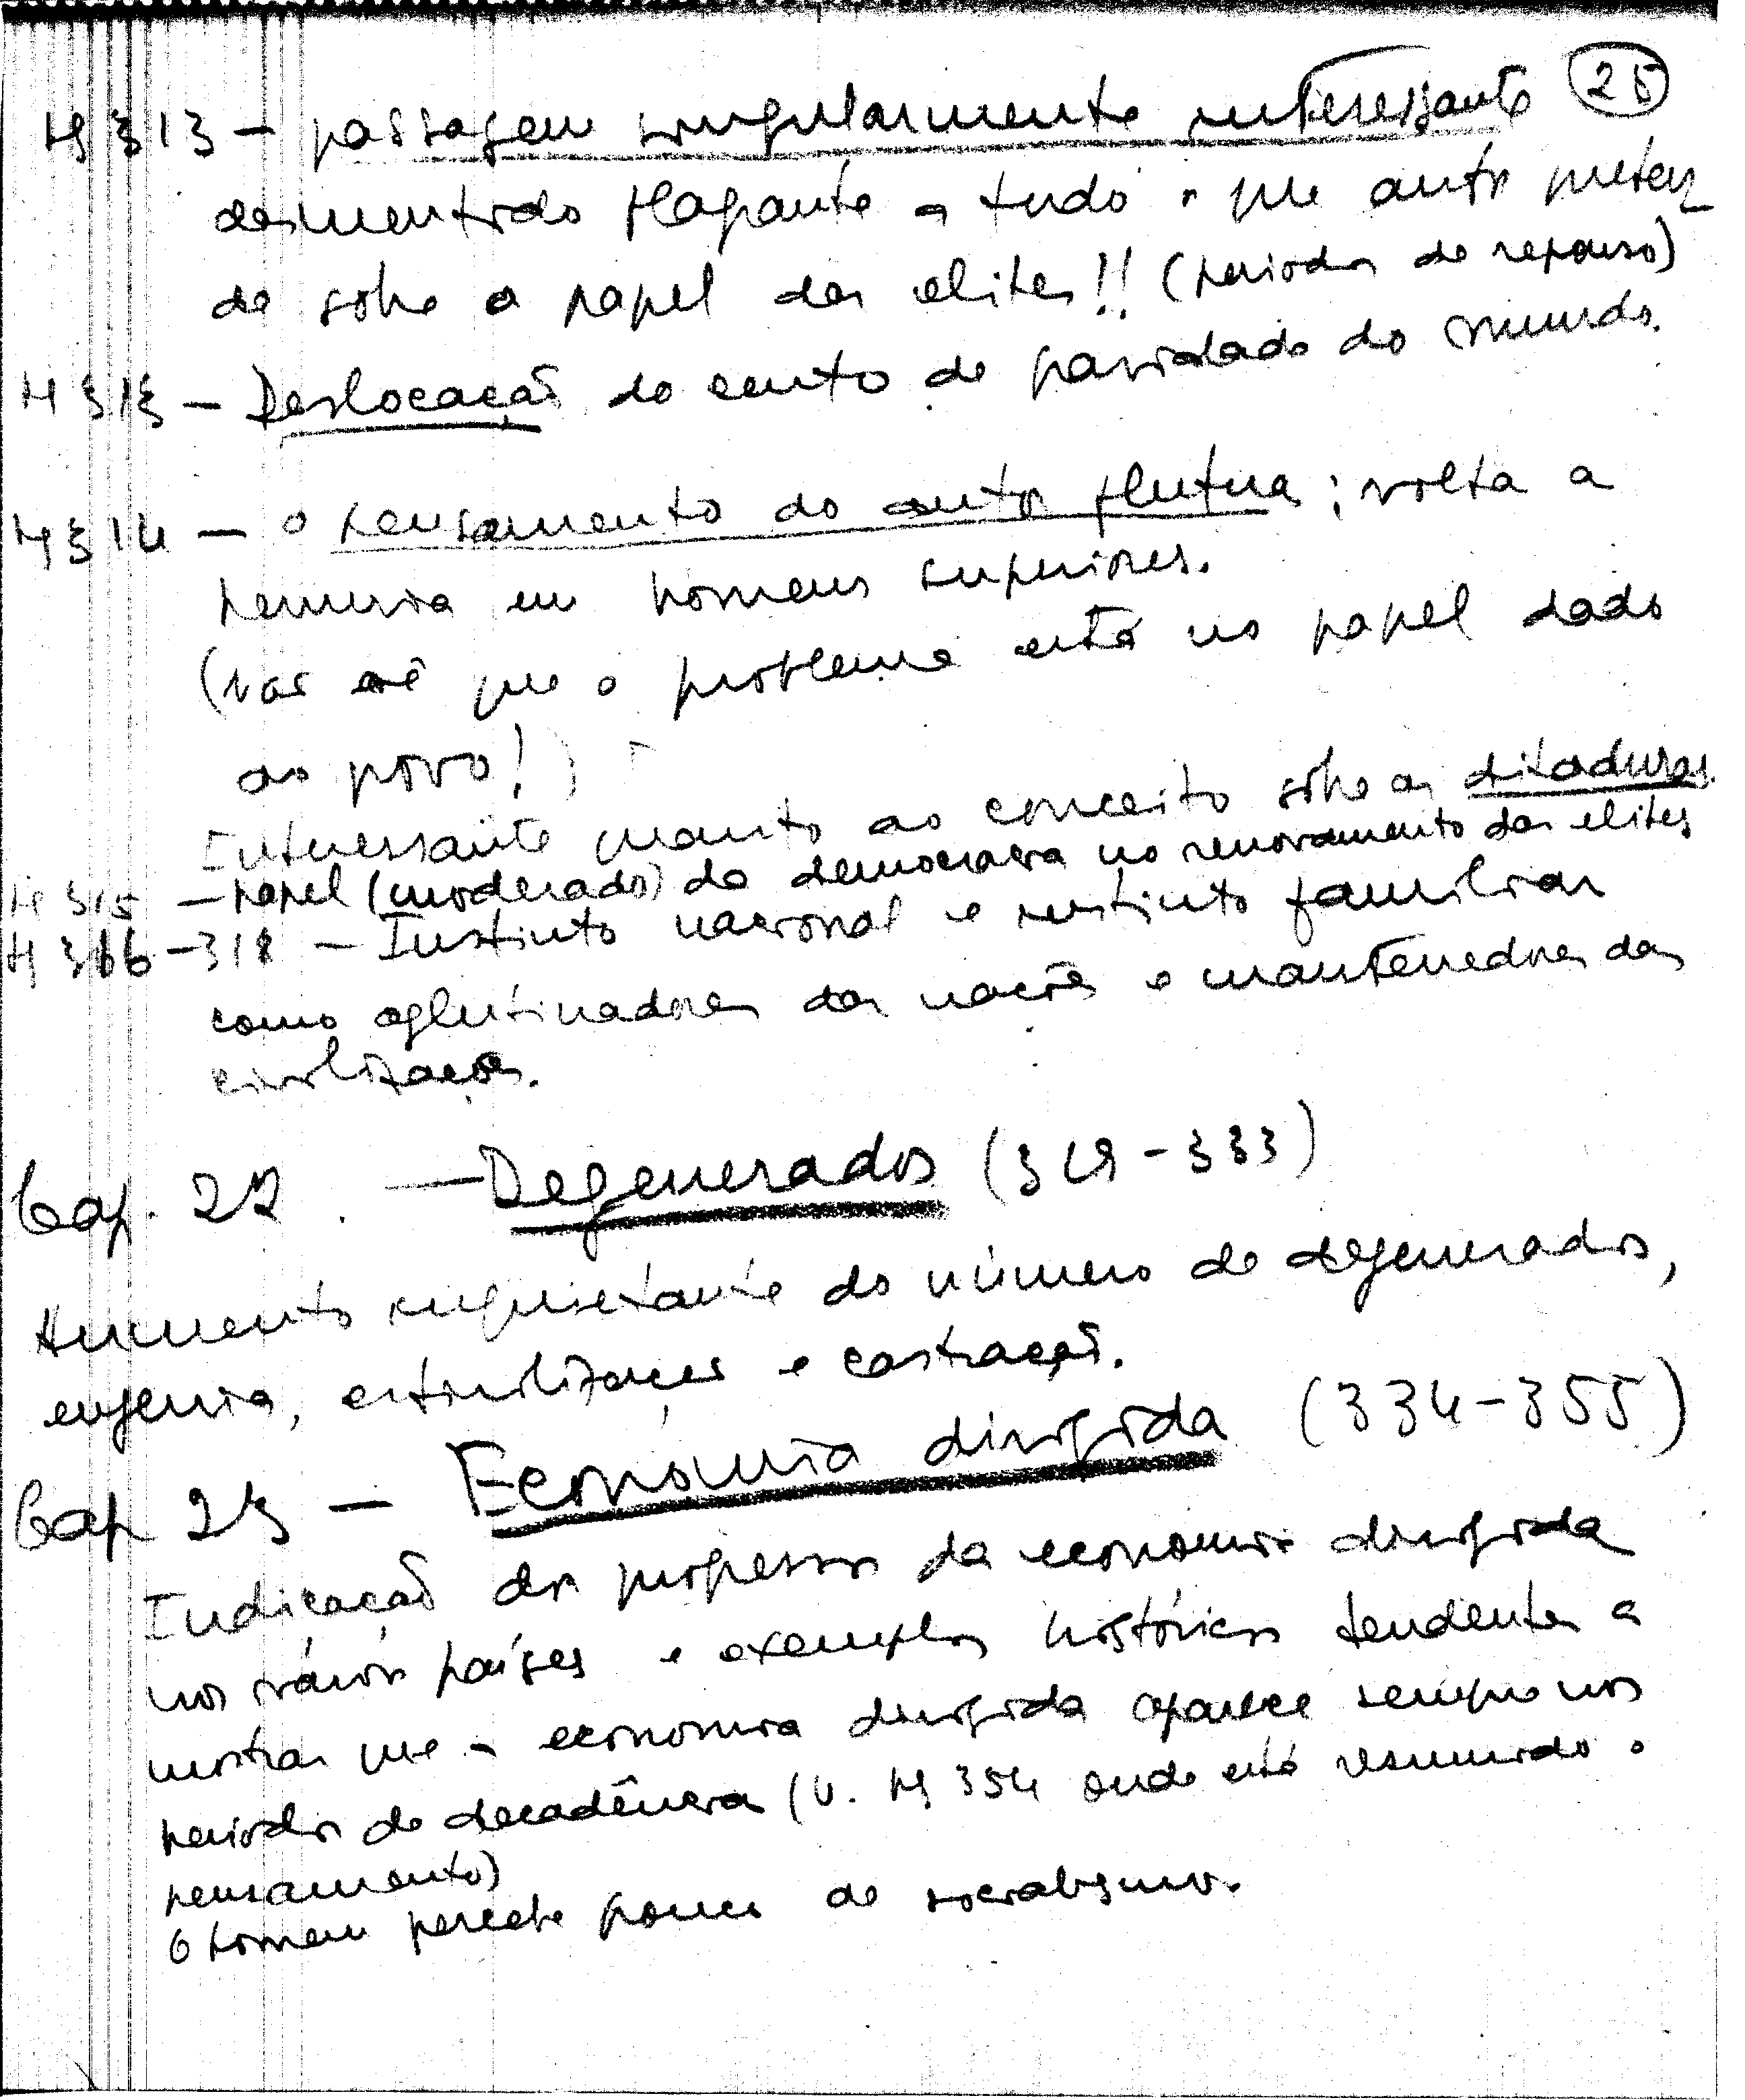 25
pg 313 – passagem singularmente interessante
desmentido flagrante a tudo o que autor preten
de sobre o papel das elites!! (periodos de repouso)
pg 313 – Deslocação do centro de gravidade do mundo.
pg 314 – o pensamento do autor flutua; volta a
penuria em homens superiores.
(não vê que o problema está no papel dado
ao povo!)
Interessante quanto ao conceito sobre as ditaduras.
pg 315 – papel (moderado) da democracia no renovamento das elites
pg 316-318 – Instinto nacional e instinto familiar
como aglutinadores das nações e mantenedores das
civilizações.
Cap. 22 – Degenerados (319-333)
Aumento inquietante do número de degenerados,
eugenia, e castração.
Cap 23 – Economia dirigida (334-355)
Indicação dos progressos da economia dirigida
nos vários países e exemplos históricos tendentes a
mostrar que a economia dirigida aparece sempre nos
periodos de decadência (V. pg 354 onde está resumido o
pensamento)
O homem percebe pouco de socialismo.